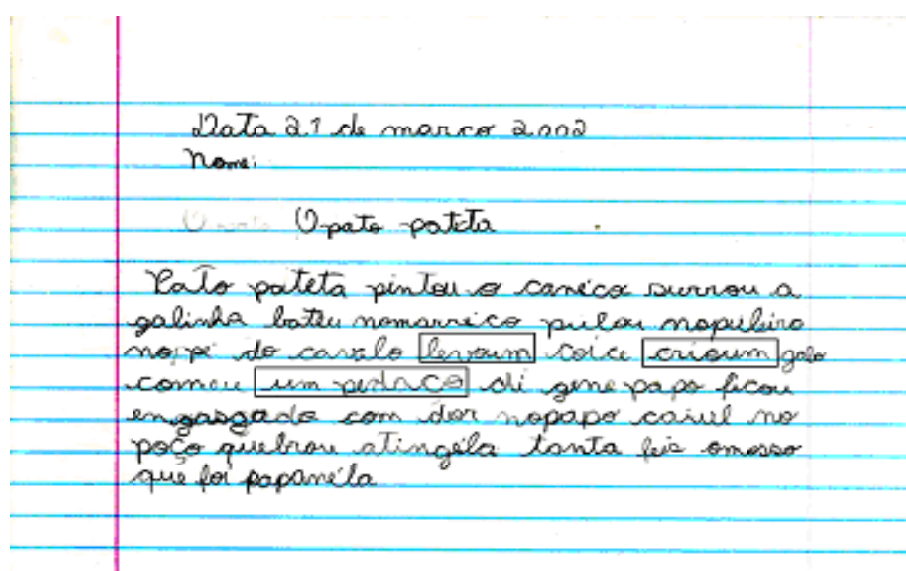 Data 21 de março 2002
Nome:
O pato pateta
Pato pateta pintou o caneco surrou a
galinha bateu nomarreco pulou nopuleiro
no pé do cavalo levoum coice crioum galo
comeu um pedaço di gene papo ficou
engasgado com dor nopapo caiul no
poço quebrou atingéla tanta feis omosso
que foi papanéla